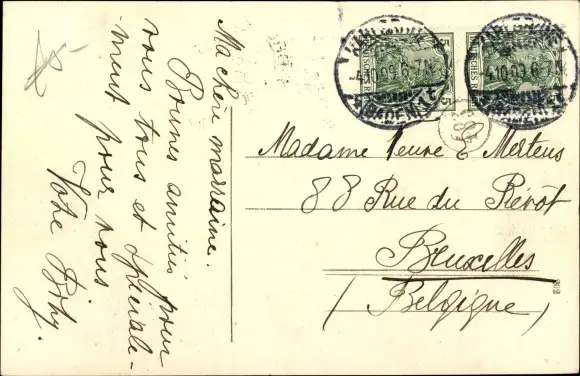 Ma chère marraine.
Bonnes amitiés pour
vous tous et spéciale-
ment pour vous
Votre
KARLSRUHE
4.10.09.6-7N.
(BADEN) 1
5
5
Madame Veuve E Mertens
88 Rue du Prévôt
Bruxelles
(Belgique)